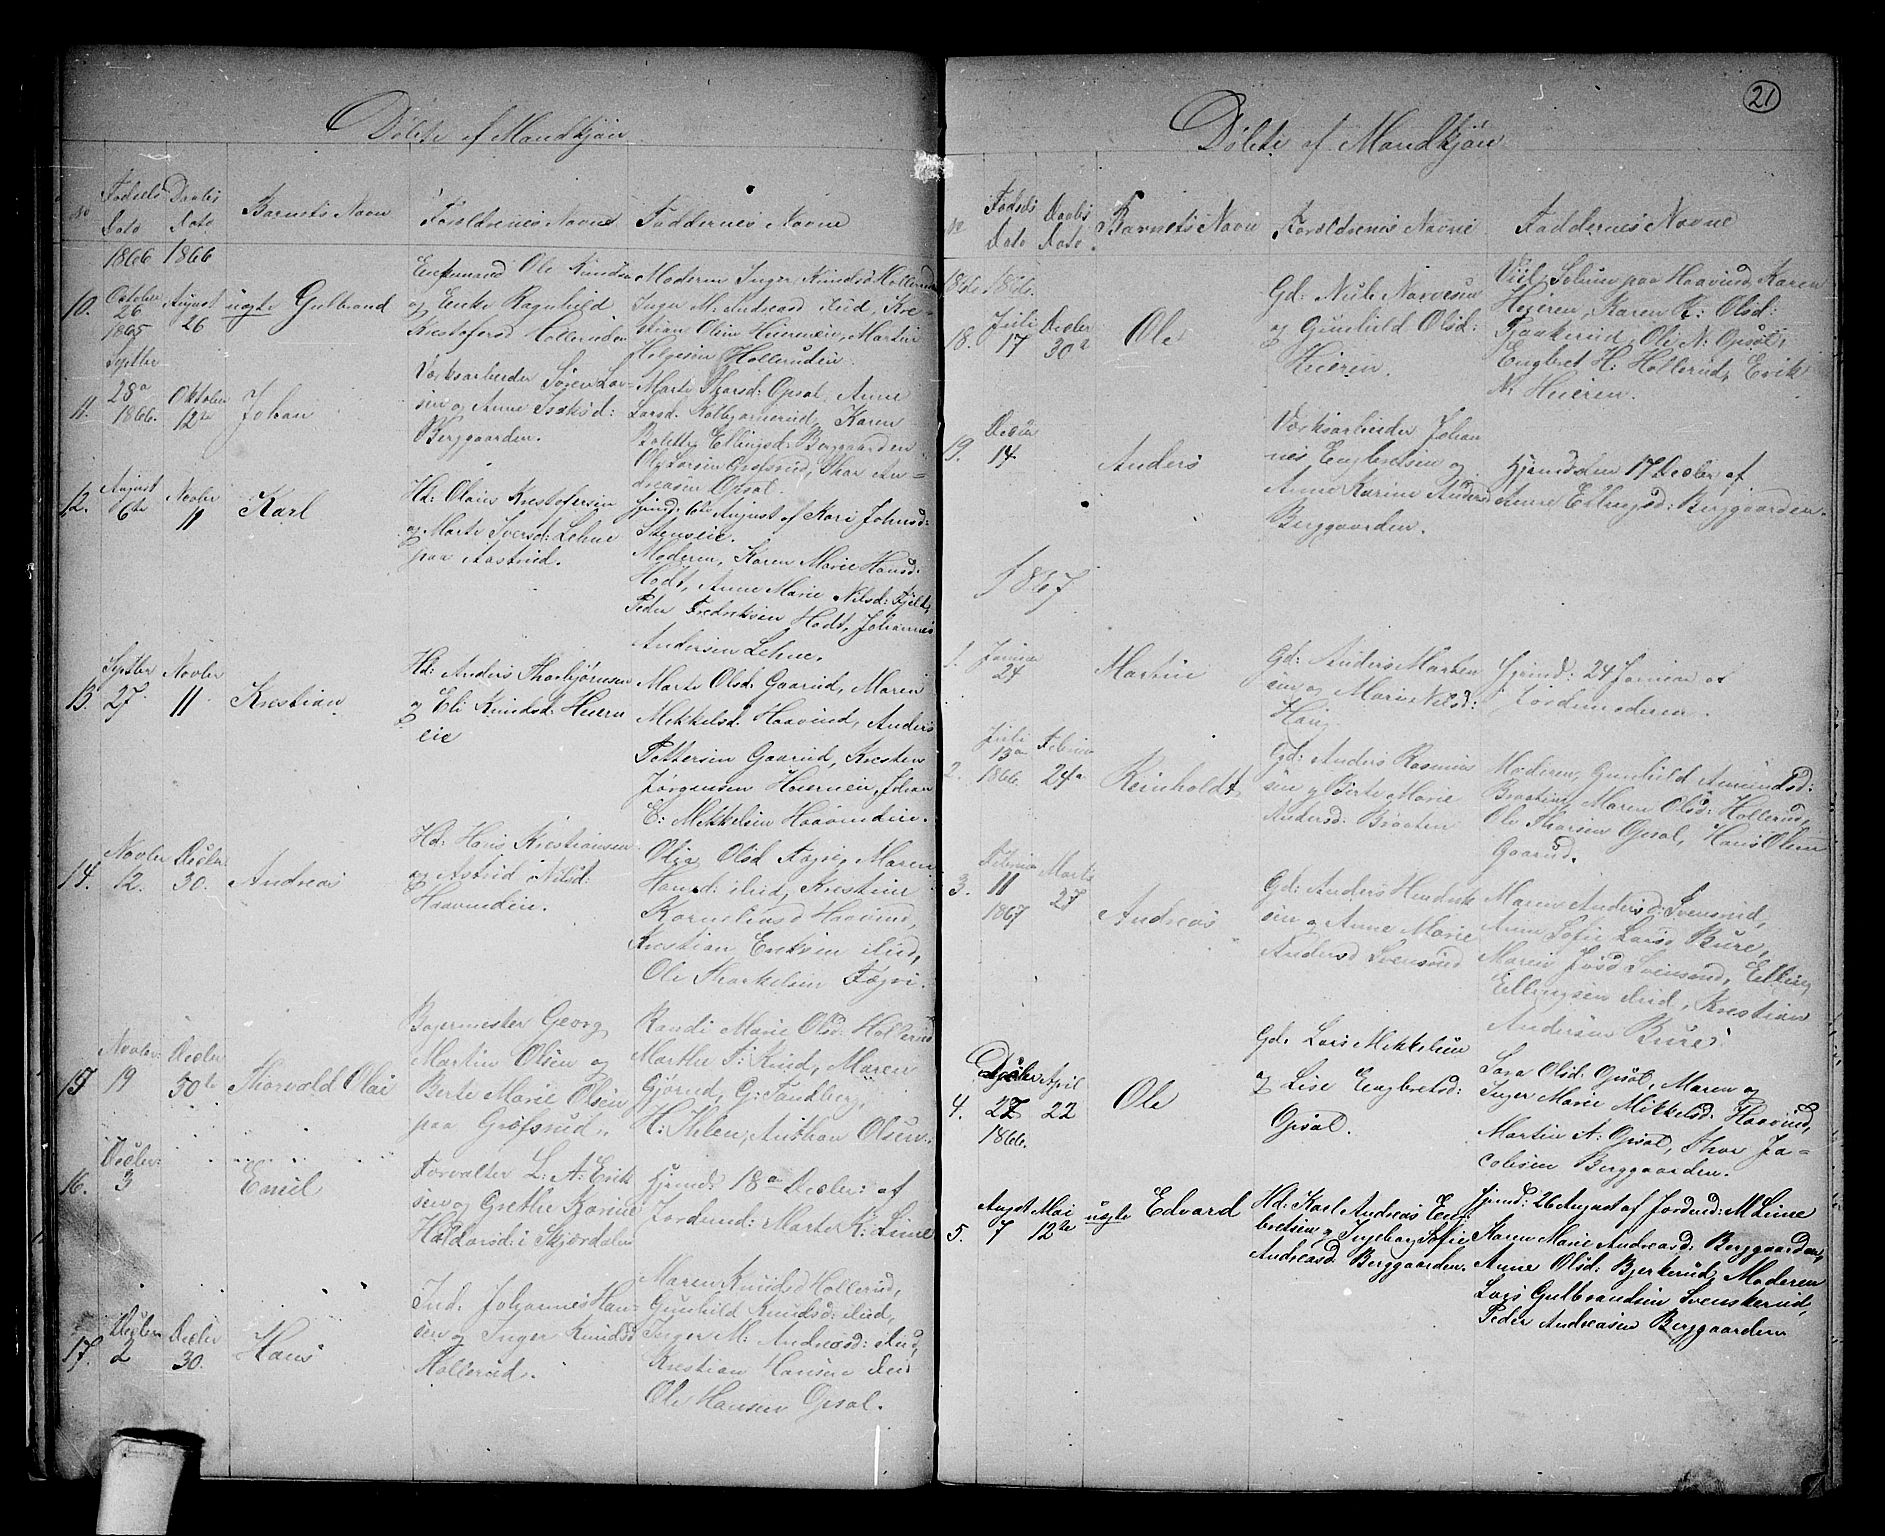 Döbte af Mandkjön
No
Fødsels Dato
Daabs Dato
Barnets Navn
Forældrenes Navne
Faddernes Navne
1866 1866
10.
October 26 1865
August 26
uægte Gulbrand
Enkemand Ole Knudsen
og Enke Ragnhild
Kristofersd Hollerudeie
Moderen Inger Knudsd Hollerud
Inger M. Andreasd ibid, Kre-
stian Olsen Heiereneie, Martin
Helgesen Hollerudeie
11.
Septbr 28a 1866.
Oktober 12te
Johan
Værksarbeider Søren Lar-
sen og Anne Isaksd:
Berggaarden.
Marte Thorsd: Opsal, Anne
Larsd. Kolbjørnerud, Karen
Bolette Ellingsd: Berggaarden
Ole Larsen Grøfsrud, Thor An-
dreasen Opsal.
12.
August 6te
Novbr 11
Karl
Hd: Olaus Krestofersen
og Marte Iversd: Lehne
paa Aastrud.
Hjemd: 6te August af Kari Johnsd:
Stenseie.
Moderen, Karen Marie Hansd:
Hodt, Anne Marie Nilsd: Fjeld,
Peder Fredriksen Hodt, Johannes
Andersen Lehne.
13.
Septbr 27.
Novbr 11
Krestian
Hd: Anders Thorbjörnsen
og Eli Knudsd: Heieren
eie
Marte Olsd: Gaarud, Maren
Mikkelsd. Haavind, Anders
Pettersen Gaarud, Kresten
Jörgensen Heiereneie, Johan
E: Mikkelsen Haavindeie.
14.
Novbr 12.
Decbr 30.
Andreas
Hd: Hans Krestiansen
og Astrid Nilsd:
Haavindeie.
Olia Olsd Fægri, Maren
Hansd: ibid, Krestine
Korneliusd Haavind,
Krestian Eriksen ibid,
Ole Thorkelsen Fægri.
15
Novbr: 19
Decbr 30te
Thorvald Olai
Bøgermester Georg
Martin Olsen og
Berte Marie Olsen
paa Grøfsrud.
Randi Marie Olsd: Hollerud
Marthe T: Rud, Maren
Gjörud, G: Sandberg,
H: Helen, Anthon Olsen.
16.
Decbr: 3
Emil
Forvalter L: A: Erik
sen og Grethe Karine
Haldorsd: i Skjærdalen
Hjemd. 18a Decbr: af
Jordmd: Marte K: Liine
17.
Decbr 2
Decbr 30.
Hans
Ind: Johannes Han-
sen og Inger Knudsd
Hollerud.
Maren Knudsd Hollerud,
Gunhild Knudsd: ibid,
Inger M: Andreasd: ibid,
Krestian Hansen ibid
Ole Hansen Opsal.
21
Döbte af Mandkjön
No
Fødsels Dato
Daabs Dato.
Barnets Navn
Forældrenes Navne
Faddernes Navne
1866 1866.
18.
Juli 17
Decbr 30a
Ole
Gd: Nub Narvesen
og Gunhild Olsd:
Heieren.
Viil Solum paa Haavind, Karen
Heieren, Karen K: Olsd:
Taakerud, Ole N. Opsal,
Engbret H: Hollerud, Erik
N: Heieren.
19.
Decbr 14
Anders
Værksarbeider Johan
nes Engbretsen og
Anne Karine Andersd
Berggaarden.
Hjemdøbt 17 Decbr af
Anne Ellingsd: Berggaarden.
1867
1.
Januar 24
Martin
Gd: Anders Marten
sen og Marie Nilsd:
Haug
Hjemd: 24 Januar af
Jordemoderen.
2.
Juli 13a 1866.
Februar 24a
Reinholdt
Gd: Anders Rasmus
sen og Berte Marie
Andersd: Braaten
Moderen, Gunhild Amundsd:
Braaten, Maren Olsd: Hollerud,
Ole Thorsen Opsal, Hans Olsen
Gaarud.
3.
Februar 11 1867
Marts 27
Andreas
Gd: Anders Hendrik
sen og Anne Marie
Andersd Svensrud
Maren Andersd: Svensrud,
Anne Sofie Larsd Bure,
Maren Josd Svensrud, Elling
Ellingsen ibid, Krestian
Andersen Bure.
4.
Decbr 27 1866.
April 22
Ole
Gd: Lars Mikkelsen
og Lise Engbretsd:
Opsal.
Sara Olsd: Opsal, Maren og
Inger Marie Mikkelsd: Haavind,
Martin A: Opsal, Thor Ja-
cobsen Berggaarden.
5.
Augst 7
Mai 12te
uægte Edvard
Hd: Karl Andreas Eng-
bretsen og Ingeborg Sofie
Andreasd Berggaarden.
Hjemd: 26 August af Jordmd: M Liine
Karen Marie Andreasd: Berggaarden,
Anne Olsd: Bjerkerud, Moderen
Lars Gulbrandsen Svenskerud,
Peder Andreasen Berggaarden